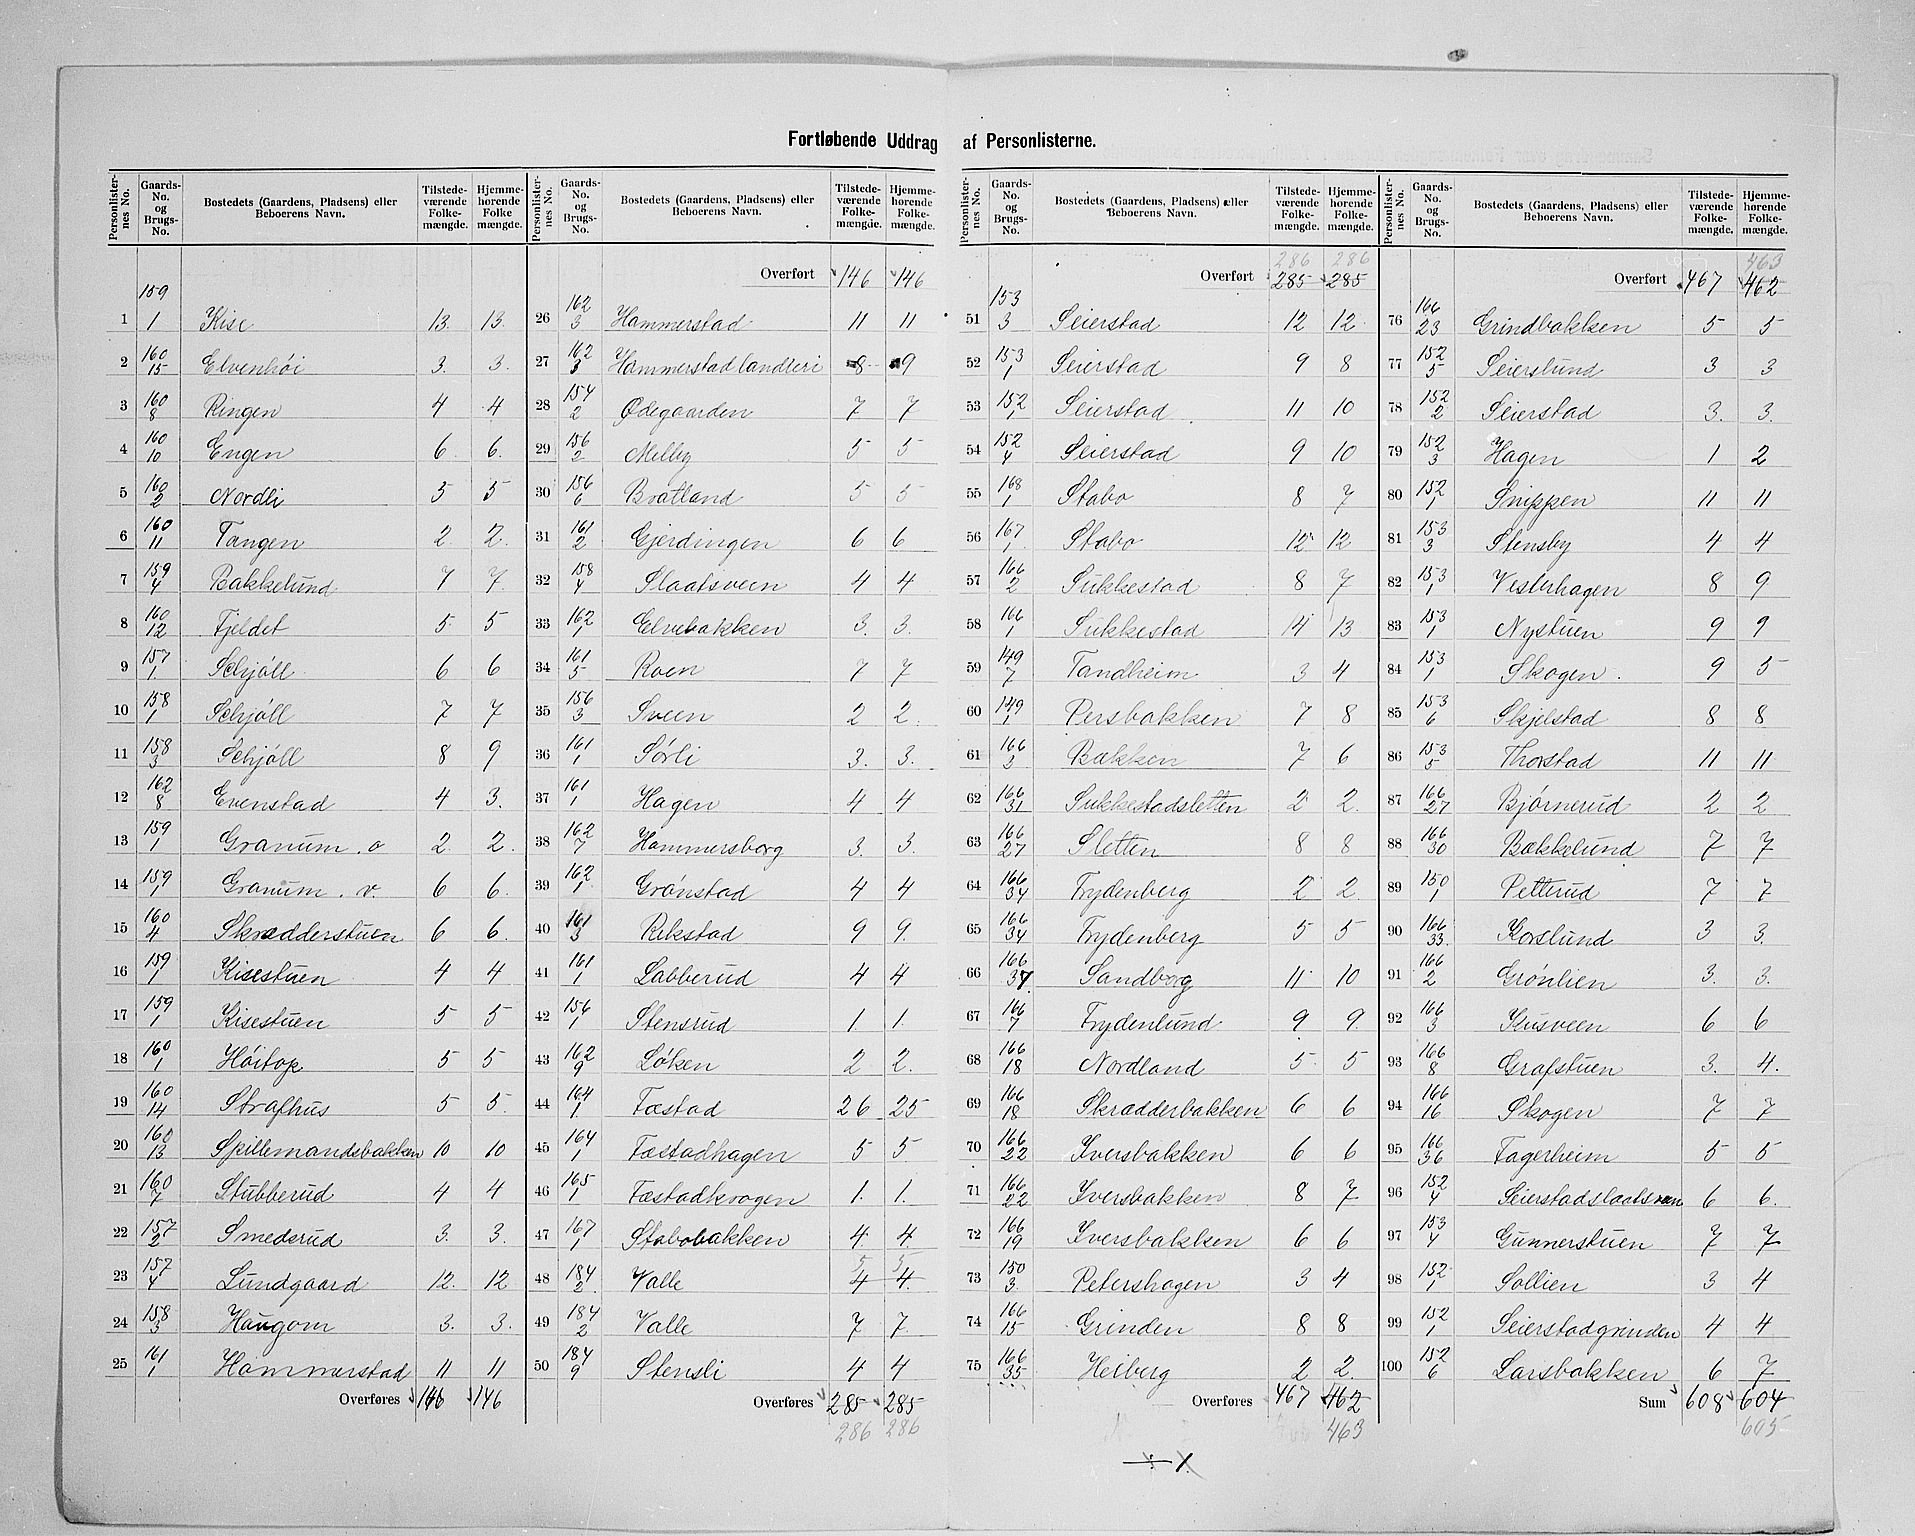 Fortløbende Uddrag af Personlisterne.
Personlister-nes No. | Gaards-No. og Brugs-No. | Bostedets (Gaardens, Pladsens) eller Beboerens Navn. | Tilstede-værende Folke-mængde. | Hjemme-hørende Folke mængde.
1 159/1 Kise 13. 13.
2 160/15 Elvenhöi 3. 3.
3 160/8 Ringen 4 4
4 160/10 Engen 6 6.
5 160/2 Nordli 5 5
6 160/11 Tangen 2. 2.
7 159/4 Bakkelund 7 7.
8 160/12 Fjeldet 5. 5
9 157/1. Schjöll 6 6
10 158/1 Schjöll 7 7
11 158/3 Schjöll 8 9
12 162/8 Evenstad 4 3.
13 159/1 Granum. o 2. 2.
14 159/1 Granum. v. 6 6.
15 160/4 Skrædderstuen 6 6.
16 159/1 Kisestuen 4 4
17 159/1 Kisestuen 5 5
18 160/1 Höitop 5 5
19 160/14 Strafhus 5 5.
20 160/13 Spillemandsbakken 10 10
21 160/7 Stubberud 4 4
22 157/2 Smedsrud 3. 3.
23 157/4 Lundgaard 12. 12
24 158/3 Haugom 3. 3.
25 161/1 Hammerstad 11 11
Overføres 146 146
Personlister-nes No. | Gaards-No. og Brugs-No. | Bostedets (Gaardens, Pladsens) eller Beboerens Navn. | Tilstede-værende Folke-mængde. | Hjemme-hørende Folke-mængde.
Overført 146 146
26 162/3 Hammerstad 11 11
27 162/3 Hammerstad landleri 8 9
28 154/2 Ødegaarden 7 7
29 156/2 Melby 5 5
30 156/6 Bratland 5 5
31 161/2 Gjerdingen 6 6
32 158/4 Slaatsveen 4 4
33 162/1 Elvebakken 3. 3.
34 161/5 Roen 7 7
35 156/3 Sveen 2 2.
36 161/1 Sørli 3. 3.
37 161/1 Hagen 4 4
38 162/7 Hammersborg 3. 3.
39 162/1 Grønstad 4 4
40 161/3 Rikstad 9 9.
41 161/1 Labberud 4 4
42 156/1 Stensrud 1. 1.
43 162/9 Løken 2 2.
44 164/1 Fæstad 26 25
45 164/1 Fæstadhagen 5 5
46 165/1 Fæstadkrogen 1. 1.
47 167/1 Stabobakken 4 4.
5 5
48 184/2. Valle 4 4
49 184/2 Valle 7 7.
50 184/9 Stensli 4 4
Overføres 285 285
286 286
Personlister-nes No. | Gaards-No. og Brugs-No. | Bostedets (Gaardens, Pladsens) eller Beboerens Navn. | Tilstede-værende Folke-mængde. | Hjemme-hørende Folke-mængde.
286 286
Overført 285 285
51 153/3 Seierstad 12 12
52 153/1 Seierstad 9 8
53 152/1 Seierstad 11 10
54 152/4 Seierstad 9 10
55 168/1 Stabo 8 7
56 167/1. Stabo 12 12
57 166/2 Sukkestad 8 7
58 166/1 Sukkestad 14 13
59 149/7 Tandheim 3 4
60 149/1 Persbakken 7 8
61 166/3 Bakken 7 6
62 166/31 Sukkestadsletten 2 2.
63 166/27 Sletten 8 8
64 166/34 Frydenberg 2 2.
65 166/34 Frydenberg 5 5
66 166/37. Sandborg 11 10
67 166/7 Frydenlund 9 9.
68 166/18 Nordland 5. 5
69 166/18 Skrædderbakken 6 6
70 166/22 Iversbakken 6 6
71 166/22 Iversbakken 8 7
72 166/19 Iversbakken 6 6
73 150/3. Petershagen 3 4
74 166/15 Grinden 8 8
75 166/35 Heiberg 2 2.
Overføres 467 462
463
Personlister-nes No. | Gaards-No. og Brugs-No. | Bostedets (Gaardens, Pladsens) eller Beboerens Navn. | Tilstede-værende Folke-mængde. | Hjemme-hørende Folke-mængde.
463
Overført 467 462
76 166/23 Grindbakken 5 5
77 152/5 Seierslund 3 3
78 152/2 Seierstad 3. 3.
79 152/3 Hagen 1 2
80 152/1 Snippen 11 11
81 153/3 Stensby 4 4
82 153/1 Vesterhagen 8 9
83 153/1 Nystuen 9 9
84 153/1 Skogen. 9 5
85 153/6 Skjelstad 8 8
86 153/5 Thorstad 11 11
87 166/27 Bjørnerud 2 2
88 166/30 Bækkelund 7 7
89 150/1 Petterud 7 7
90 166/33. Korslund 3 3.
91 166/2 Grønlien 3. 3.
92 166/3 Kusveen 6 6
93 166/8 Grafstuen 3. 4.
94 166/16 Skogen 7 7
95 166/36 Fagerheim 5 5
96 152/4 Seierstadslaatsveen 6 6.
97 153/4 Gunnerstuen 7 7
98 152/1 Sollien 3 4
99 152/1 Seierstadgrinden 4 4
100 152/6 Larsbakken 6 7
Sum 608 604
605